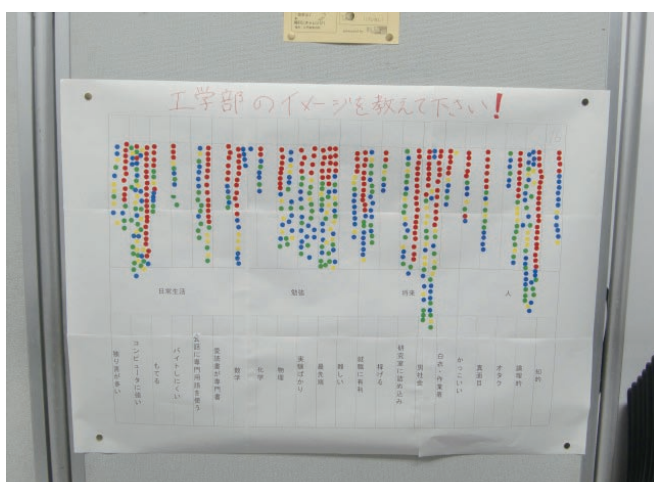 工学部のイメージを教えて下さい!
日常生活
勉強
将来
人
独り言が多い
コンピュータに強い
もてる
バイトしにくい
会話に専門用語を使う
愛読書が専門書
数学
化学
物理
実験ばかり
最先端
難しい
就職に有利
稼げる
研究室に詰め込み
男社会
白衣・作業着
かっこいい
真面目
オタク
論理的
知的